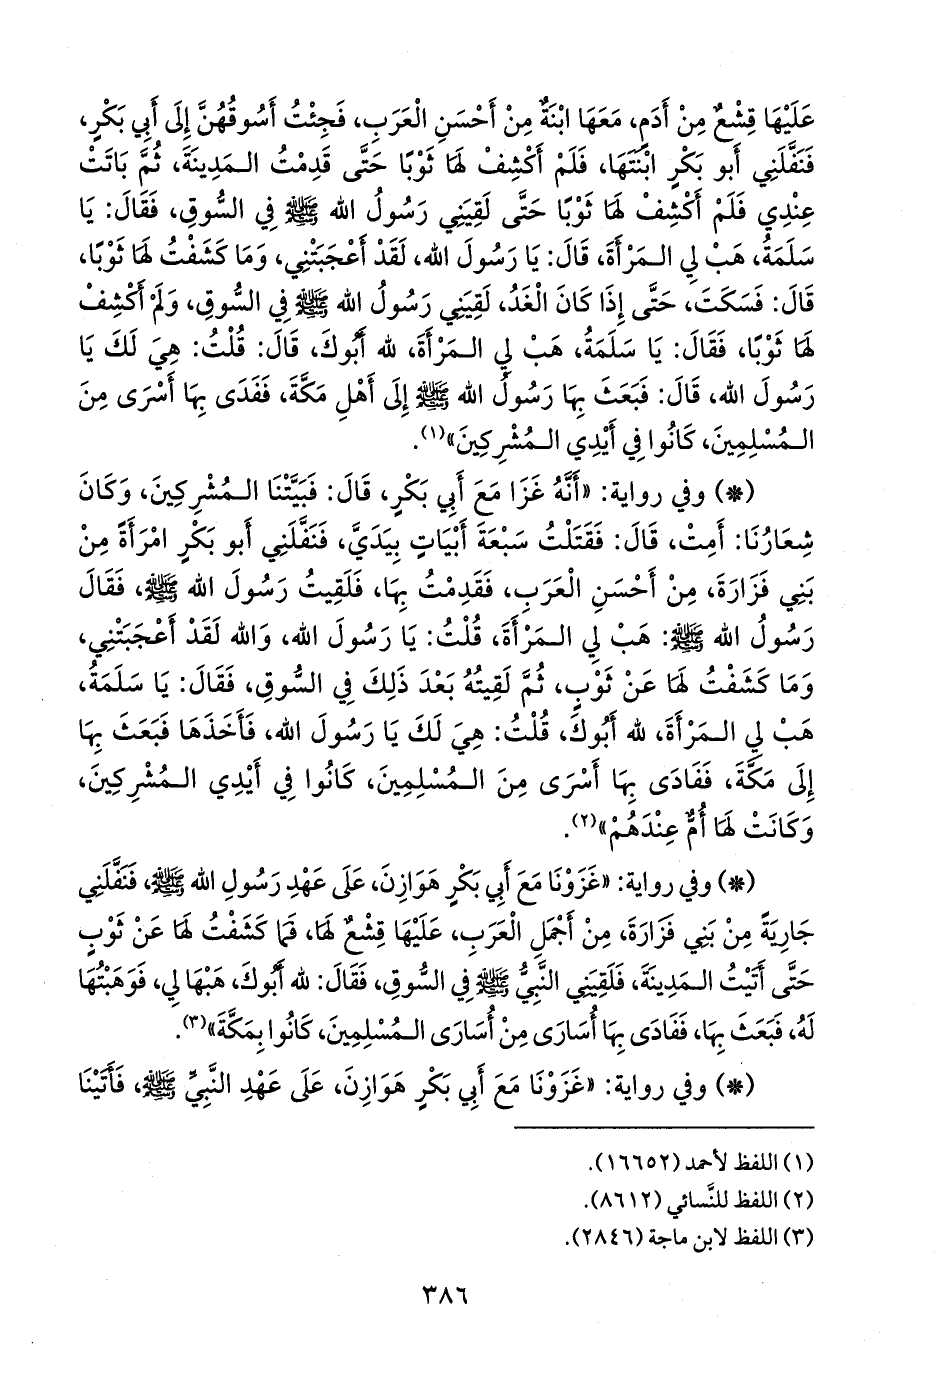 عَلَيْهَا قِشْعٌ مِنْ أَدَمٍ، مَعَهَا ابْنَةٌ مِنْ أَحْسَنِ الْعَرَبِ، فَجِئْتُ أَسُوقُهُنَّ إِلَى أَبِي بَكْرٍ،
فَنَفَّلَنِي أَبو بَكْرٍ ابْنَتَهَا، فَلَمْ أَكْشِفْ لَهَا ثَوْبًا حَتَّى قَدِمْتُ الـمَدِينَةَ، ثُمَّ بَاتَتْ
عِنْدِي فَلَمْ أَكْشِفْ لَهَا ثَوْبًا حَتَّى لَقِيَنِي رَسُولُ الله ﷺ فِي السُّوقِ، فَقَالَ: يَا
سَلَمَةُ، هَبْ لِي الـمَرْأَةَ، قَالَ: يَا رَسُولَ الله، لَقَدْ أَعْجَبَتْنِي، وَمَا كَشَفْتُ لَهَا ثَوْبًا،
قَالَ: فَسَكَتَ، حَتَّى إِذَا كَانَ الْغَدُ، لَقِيَنِي رَسُولُ الله ﷺ فِي السُّوقِ، وَلَمْ أَكْشِفْ
لَهَا ثَوْبًا، فَقَالَ: يَا سَلَمَةُ، هَبْ لِي الـمَرْأَةَ، لله أَبُوكَ، قَالَ: قُلْتُ: هِيَ لَكَ يَا
رَسُولَ الله، قَالَ: فَبَعَثَ بِهَا رَسُولُ الله ﷺ إِلَى أَهْلِ مَكَّةَ، فَفَدَى بِهَا أَسْرَى مِنَ
الـمُسْلِمِينَ، كَانُوا فِي أَيْدِي الـمُشْرِكِينَ»(١).
(*) وفي رواية: «أَنَّهُ غَزَا مَعَ أَبِي بَكْرٍ، قَالَ: فَبَيَّتْنَا الـمُشْرِكِينَ، وَكَانَ
شِعَارُنَا: أَمِتْ، قَالَ: فَقَتَلْتُ سَبْعَةَ أَبْيَاتٍ بِيَدَيَّ، فَنَفَّلَنِي أَبو بَكْرٍ امْرَأَةً مِنْ
بَنِي فَزَارَةَ، مِنْ أَحْسَنِ الْعَرَبِ، فَقَدِمْتُ بِهَا، فَلَقِيتُ رَسُولَ الله ﷺ، فَقَالَ
رَسُولُ الله ﷺ: هَبْ لِي الـمَرْأَةَ، قُلْتُ: يَا رَسُولَ الله، وَالله لَقَدْ أَعْجَبَتْنِي،
وَمَا كَشَفْتُ لَهَا عَنْ ثَوْبٍ، ثُمَّ لَقِيتُهُ بَعْدَ ذَلِكَ فِي السُّوقِ، فَقَالَ: يَا سَلَمَةُ،
هَبْ لِي الـمَرْأَةَ، لله أَبُوكَ، قُلْتُ: هِيَ لَكَ يَا رَسُولَ الله، فَأَخَذَهَا فَبَعَثَ بِهَا
إِلَى مَكَّةَ، فَفَادَى بِهَا أَسْرَى مِنَ الـمُسْلِمِينَ، كَانُوا فِي أَيْدِي الـمُشْرِكِينَ،
وَكَانَتْ لَهَا أُمٌّ عِنْدَهُمْ»(٢).
(*) وفي رواية: «غَزَوْنَا مَعَ أَبِي بَكْرٍ هَوَازِنَ، عَلَى عَهْدِ رَسُولِ الله ﷺ، فَنَفَّلَنِي
جَارِيَةً مِنْ بَنِي فَزَارَةَ، مِنْ أَجْمَلِ الْعَرَبِ، عَلَيْهَا قِشْعٌ لَهَا، فَمَا كَشَفْتُ لَهَا عَنْ ثَوْبٍ
حَتَّى أَتَيْتُ الـمَدِينَةَ، فَلَقِيَنِي النَّبِيُّ ﷺ فِي السُّوقِ، فَقَالَ: لله أَبُوكَ، هَبْهَا لِي، فَوَهَبْتُهَا
لَهُ، فَبَعَثَ بِهَا، فَفَادَى بِهَا أُسَارَى مِنْ أُسَارَى الـمُسْلِمِينَ، كَانُوا بِمَكَّةَ»(٣).
(*) وفي رواية: «غَزَوْنَا مَعَ أَبِي بَكْرٍ هَوَازِنَ، عَلَى عَهْدِ النَّبِيِّ ﷺ، فَأَتَيْنَا
(١) اللفظ لأحمد (١٦٦٥٢).
(٢) اللفظ للنَّسائي (٨٦١٢).
(٣) اللفظ لابن ماجة (٢٨٤٦).
٣٨٦